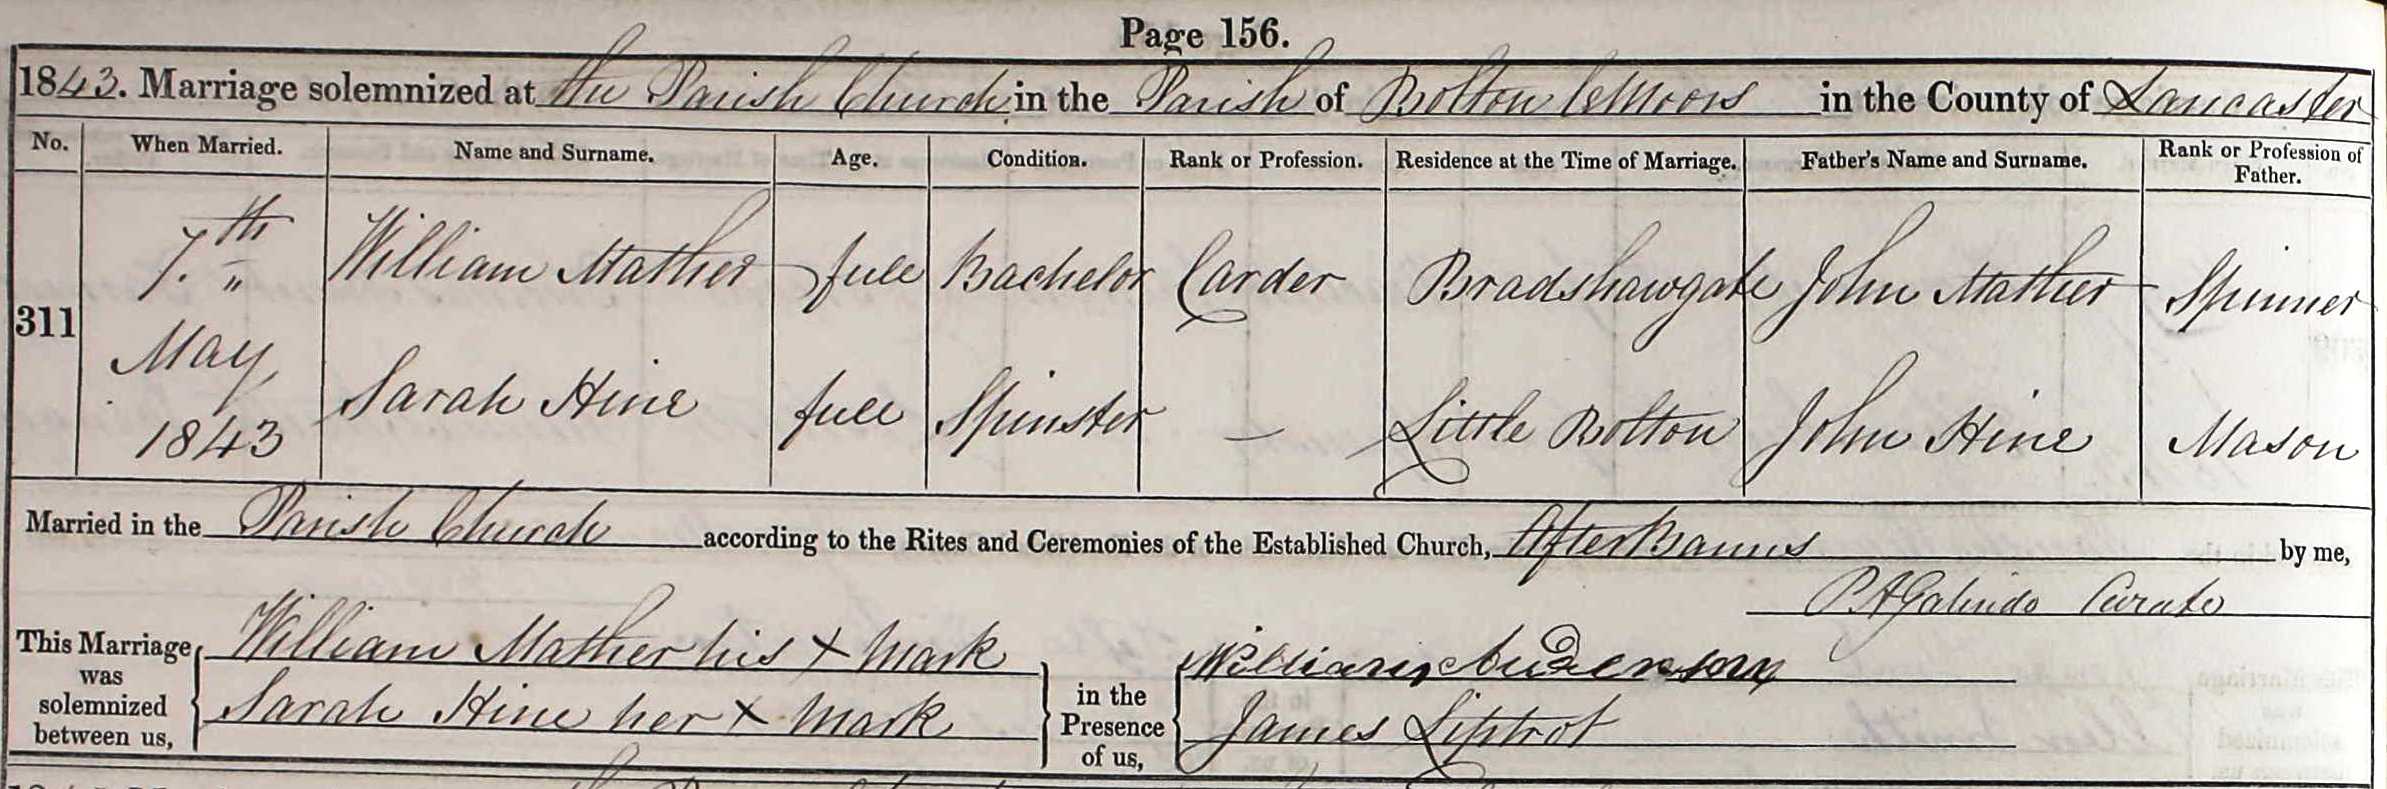 Page 156.
1843. Marriage solemnized at the Parish Church in the Parish of Bolton le Moors in the County of Lancaster
No. When Married. Name and Surname. Age. Condition. Rank or Profession. Residence at the Time of Marriage. Father's Name and Surname. Rank or Profession of Father.
311 7.th May 1843 William Mather full Bachelor Carder Bradshawgate John Mather Spinner
Sarah Hine full Spinster — Little Bolton John Hine Mason
Married in the Parish Church according to the Rites and Ceremonies of the Established Church, After Banns by me,
P A Galindo Curate
This Marriage was solemnized between us, William Mather his X Mark
Sarah Hine her X Mark
in the Presence of us, William Anderson
James Liptrot